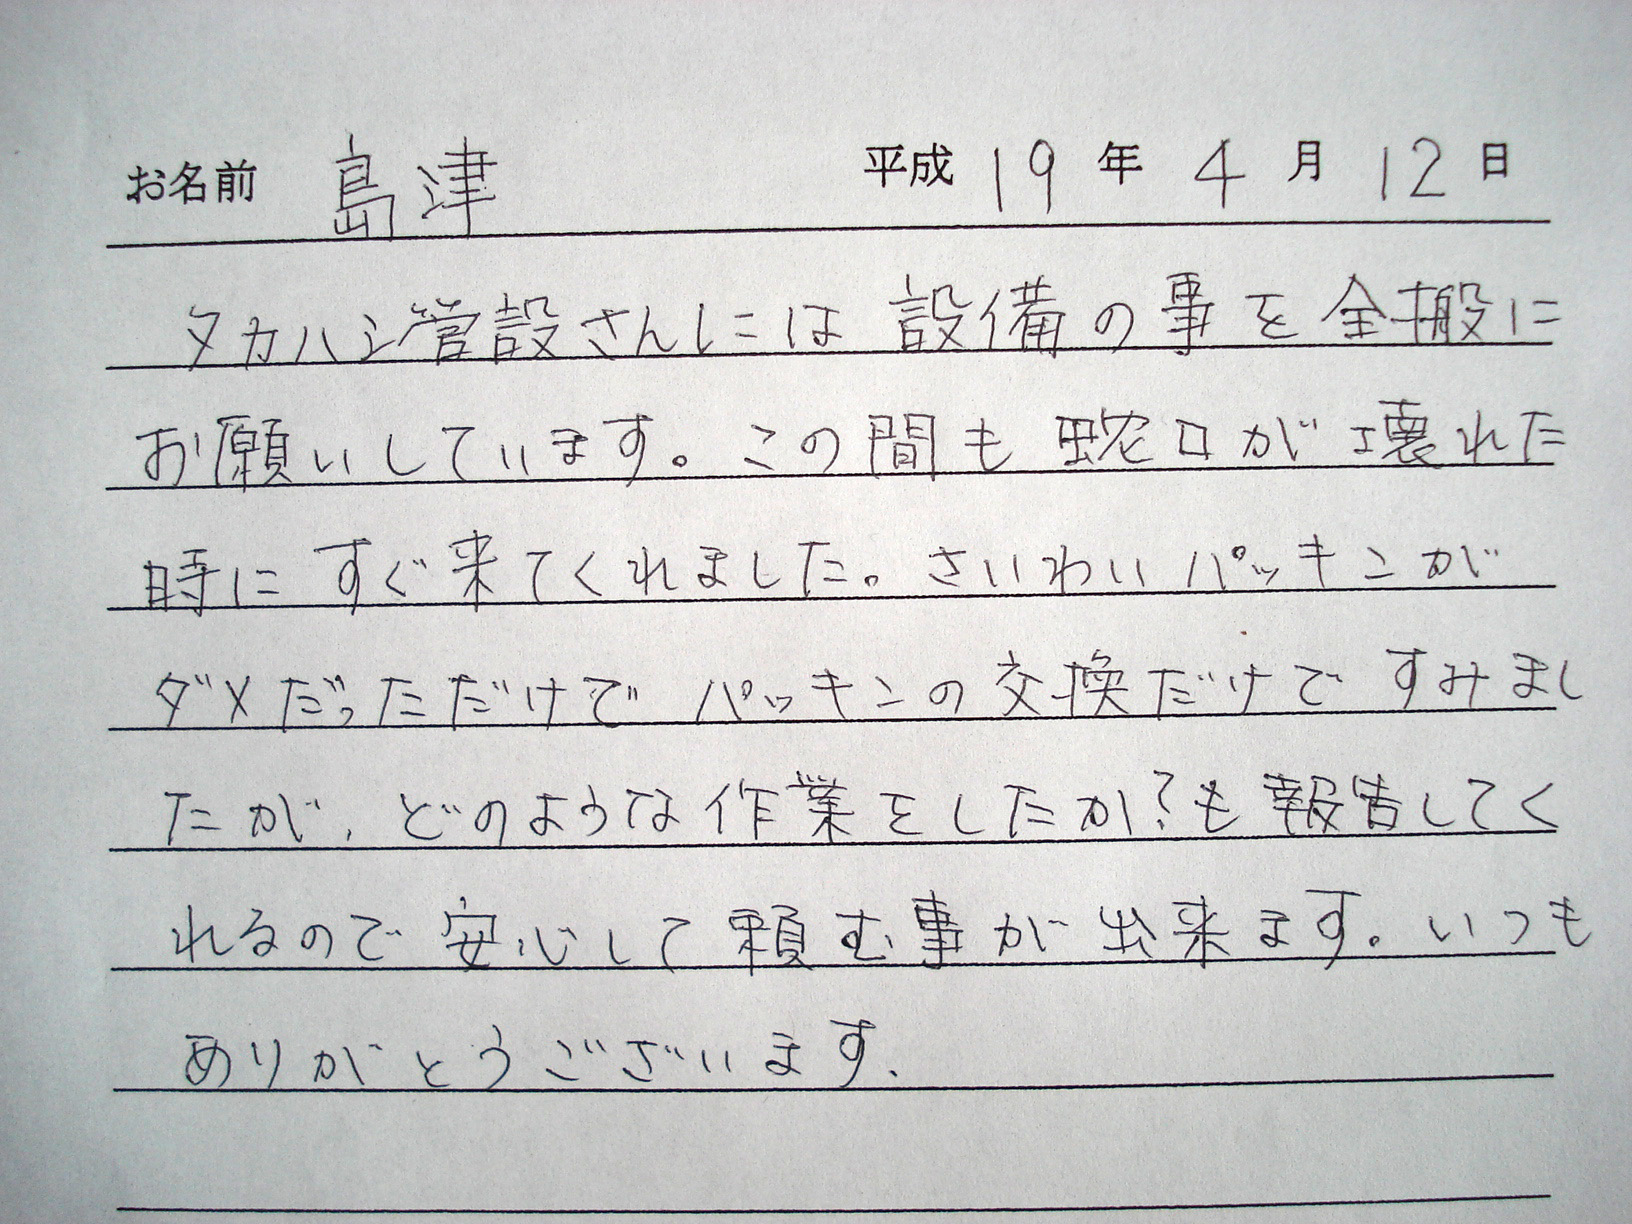 お名前 島津 平成 19 年 4 月 12 日
タカハシ管設さんには設備の事を全搬に
お願いしています。この間も蛇口が壊れた
時にすぐ来てくれました。さいわいパッキンが
ダメだっただけでパッキンの交換だけですみまし
たが、どのような作業をしたか?も報告してく
れるので安心して頼む事が出来ます。いつも
ありがとうございます.